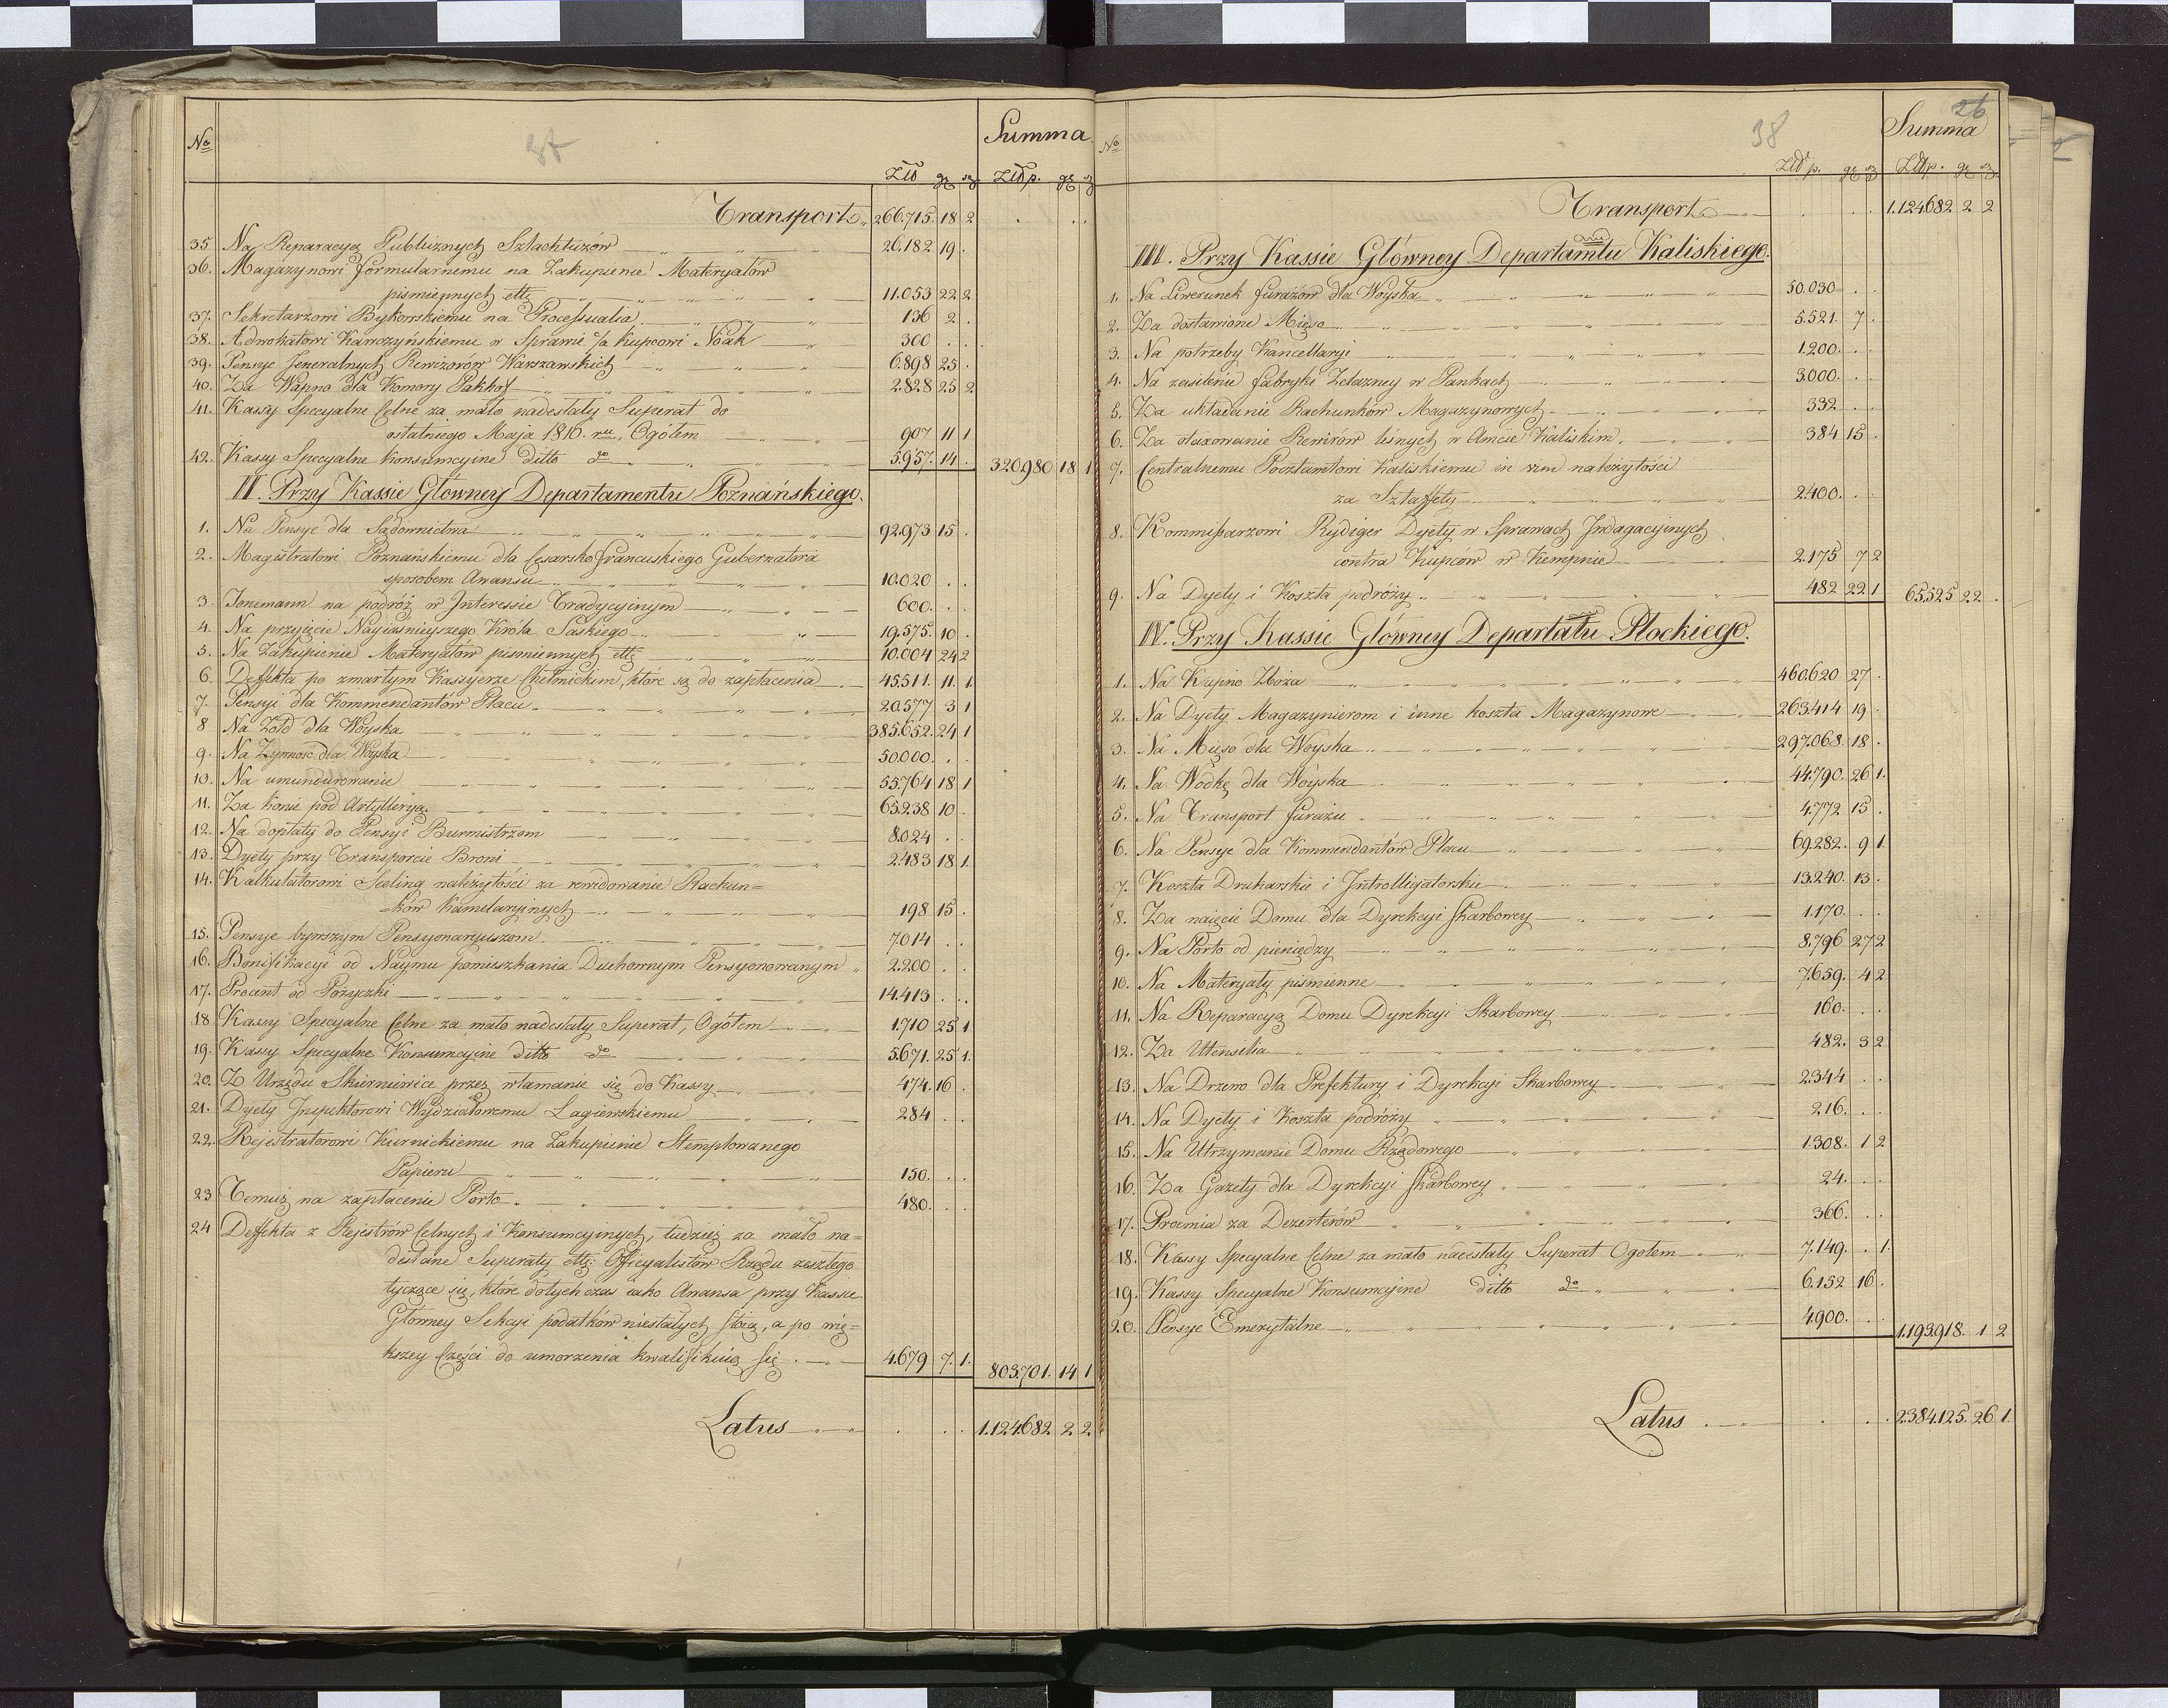 37
No
Summa
Złd gr sz Złd p. gr sz
Transport „ 266.715. 18 2 . . .
35 Na Reparacyą Publicznych Szlachtuzów 26.182 19 .
36. Magazynowi formularnemu na Zakupienie Materyałów
piśmiennych ettc 11.053 22 2
37. Sekretarzowi Bykowskiemu na Processualia 136 2 .
38. Adwokatowi Kawczyńskiemu w Sprawie c/a Kupcowi Noak 300 . .
39. Pensye Jeneralnych Rewizorów Warszawskich 6.898 25 .
40. Za Wapno dla Komory Pakhof 2.828 25 2
41. Kassy Specyalne Celne za mało nadesłały Superat do
ostatniego Maja 1810. ru, Ogółem 907 11 1
42. Kassy Specyalne Konsumcyine ditto do 5.957. 14 . 320.980 18 1
II. Przy Kassie Główney Departamentu Poznańskiego.
1. Na Pensye dla Sądownictwa 92.973 15 .
2. Magistratowi Poznańskiemu dla Cesarsko francuskiego Gubernatora
sposobem Awansu 10.020 . .
3. Tonemann na podróż w Interessie Tradycyinym 600. . .
4. Na przyięcie Nayiaśnieyszego Króla Saskiego 19.575. 10 .
5. Na Zakupienie Materyałów piśmiennych ettc 10.004 24 2
6. Deffekta po zmarłym Kassyerze Chełmickim, które są do zapłacenia 45.511. 11. 1.
7. Pensyi dla Kommendantów Placu 20.577 3 1
8 Na Żołd dla Woyska 385.652. 24 1
9. Na Żywność dla Woyska 50.000. . .
10. Na umundurowanie 55.764 18 1
11. Za konie pod Artylleryą 65.238 10 .
12. Na dopłaty do Pensyi Burmistrzom 8.024 . .
13. Dyety przy Transporcie Broni 2.483 18 1.
14. Kalkulatorowi Seeling należytości za rewidowanie Rachun=
=ków Kamelaryinych 198 15 .
15. Pensye bywszym Pensyonaryuszom 7.014 . .
16. Bonifikacye od Naymu pomieszkania Duchownym Pensyonowanym „ 2.200 . .
17. Procent od Pożyczki 14.413 . .
18 Kassy Specyalne Celne za mało nadesłały Superat, Ogółem 1.710 25 1
19. Kassy Specyalne Konsumcyine ditto do 5.671. 25 1.
20. Z Urzędu Skierniewice przez włamanie się do Kassy 474. 16 .
21. Dyety Inspektorowi Wydziałowemu Łagiewskiemu 284 . .
22. Rejestratorowi Kurnickiemu na Zakupienie Stemplowanego
Papieru 150. . .
23 Temuż na zapłacenie Porto 480. . .
24 Deffekta z Rejestrów Celnych i Konsumcyinych, tudzież za mało na=
desłane Superaty ettc Officyalistów Rządu zeszłego
tyczące się, które dotychczas iako Awansa przy Kassie
Główney Sekcyi podatków niestałych stoią, a po wię=
kszey Części do umorzenia kwalifikuią się 4.679 7. 1. 803.701. 14 1
Latus . . . 1.124.682 2 2.
26
38
No
Summa
Złd p. gr sz Złd p. gr sz
Transport . . . 1.124.682 2 2
III. Przy Kassie Główney Departamtu Kaliskiego.
1. Na Liwerunek furażów dla Woyska 50.030 . .
2. Za dostawione Mięso 5.521. 7 .
3. Na potrzeby Kancellaryi 1.200. . .
4. Na zasilenie fabryki Żelazney w Pankach 3.000. . .
5. Za układanie Rachunków Magazynowych 332 . .
6. Za otaxowanie Rewirów leśnych w Amcie Kaliskim 384 15 .
7. Centralnemu Pocztamtowi Kaliskiemu in vim należytości
za Sztaffety 2.400. . .
8. Kommissarzowi Rydiger Dyety w Sprawach Indagacyinych
contra Kupców w Kempnie 2.175 7 2
9. Na Dyety i Koszta podróży 482 22 1 65.525 22 .
IV. Przy Kassie Główney Departatu Płockiego.
1. Na Kupno Zboża 460.620 27 .
2. Na Dyety Magazynierom i inne koszta Magazynowe 263.414 19 .
3. Na Mięso dla Woyska 297.068. 18 .
4. Na Wódkę dla Woyska 44.790. 26 1.
5. Na Transport furażu 4.772 15 .
6. Na Pensye dla Kommendantów Placu 69.282. 9 1.
7. Koszta Drukarskie i Introlligatorskie 13.240. 13 .
8. Za naięcie Domu dla Dyrekcyi skarbowey 1.170. . .
9. Na Porto od pieniędzy 8.796 27 2
10. Na Materyały piśmienne 7.659. 4 2
11. Na Reparacyą Domu Dyrekcyi Skarbowey 160. . .
12. Za Utensilia 482. 3 2
13. Na Drzewo dla Prefektury i Dyrekcyi Skarbowey 2.344 . .
14. Na Dyety i Koszta podróży 216. . .
15. Na Utrzymanie Domu Rządowego 1.308. 1 2
16. Za Gazety dla Dyrekcyi skarbowey 24. . .
17. Proemia za Dezerterów 366. . .
18. Kassy Specyalne Celne za mało nadesłały Superat Ogółem 7.149. . 1.
19. Kassy Specyalne Konsumcyine ditto do 6.152 16 .
20. Pensye Emerytalne 4.900. . . 1.193.918. 1 2
Latus . . . 2.384.125. 26 1.